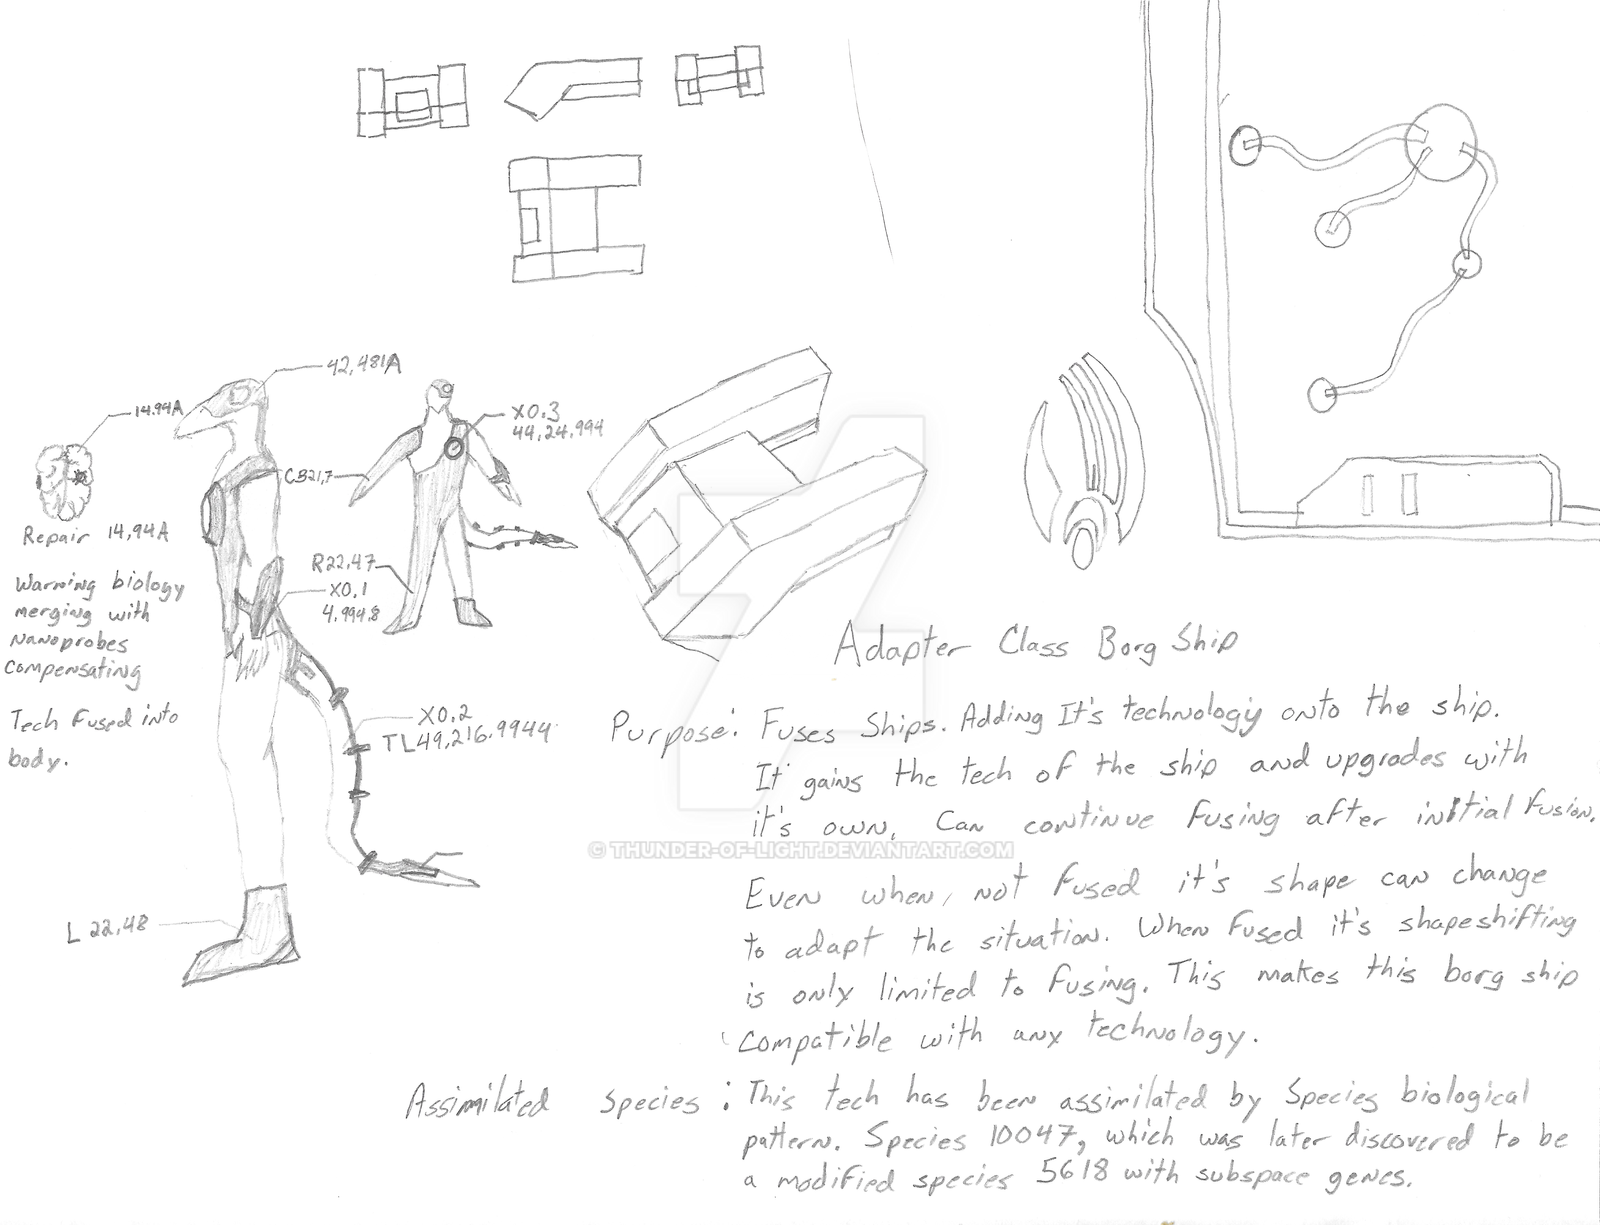 42,481A
14,94A
X0.3
44,24,994
CB21,7
Repair 14,94A
R22,47
X0.1
4,994.8
Warning biology
merging with
Nanoprobes
compensating
Tech Fused into
body.
X0.2
TL49,216.9944
L 22,48
Adapter Class Borg Ship
Purpose: Fuses Ships. Adding It's technology onto the ship.
It gains the tech of the ship and upgrades with
it's own. Can continue fusing after initial fusion.
© THUNDER-OF-LIGHT.DEVIANTART.COM
Even when, not fused it's shape can change
to adapt the situation. When fused it's shapeshifting
is only limited to fusing. This makes this borg ship
compatible with any technology.
Assimilated species: This tech has been assimilated by Species biological
pattern. Species 10047, which was later discovered to be
a modified species 5618 with subspace genes.